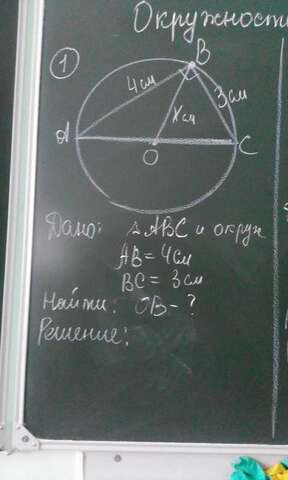 Окружность
1
B
4см
3см
xсм
A
O
C
Дано: △ABC и окруж
AB = 4см
BC = 3см
Найти: OB - ?
Решение: